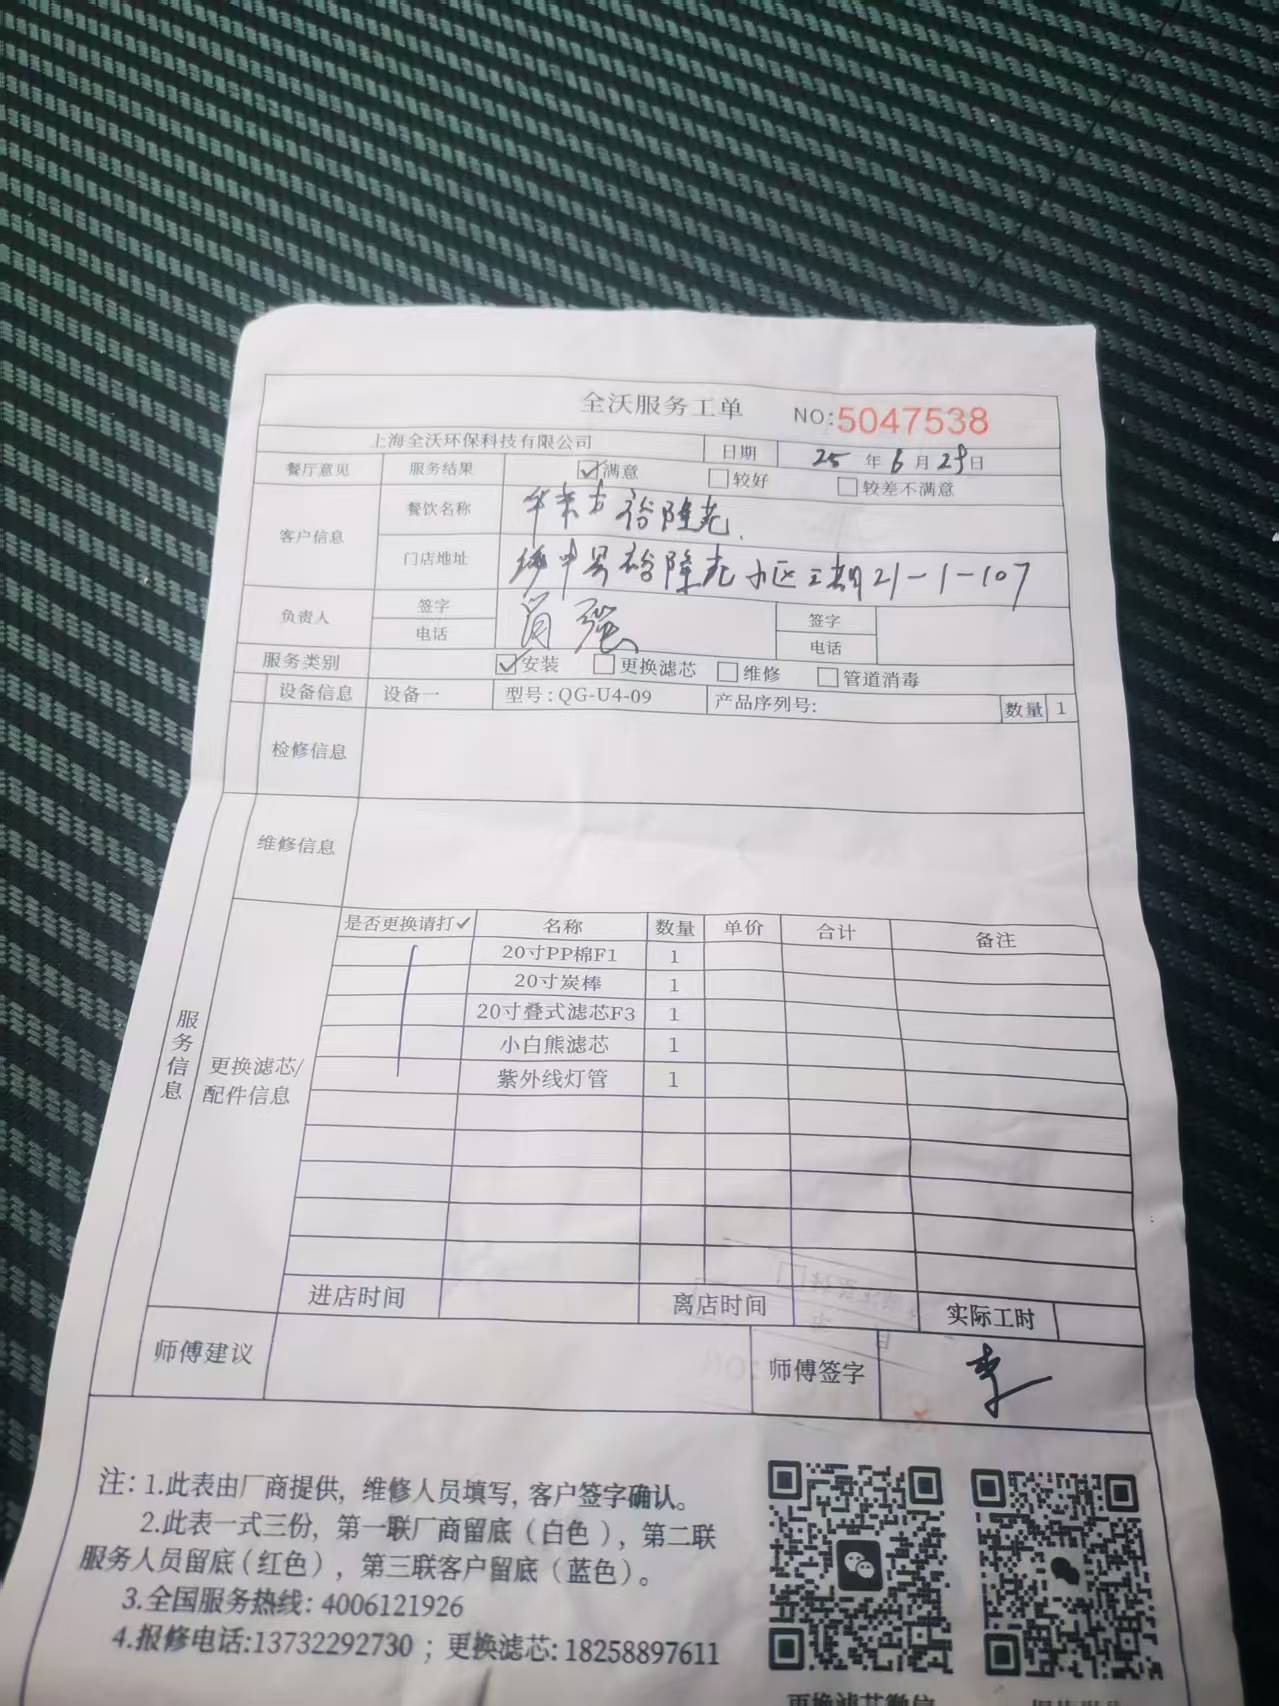 全沃服务工单 NO:5047538
上海全沃环保科技有限公司 日期 25 年 6 月 29 日
餐厅意见 服务结果 满意 较好 较差不满意
客户信息 餐饮名称 华莱士裕隆苑
门店地址 县裕隆苑小区三期21-1-107
负责人 签字 签字
电话 电话
服务类别 安装 更换滤芯 维修 管道消毒
设备信息 设备一 型号:QG-U4-09 产品序列号: 数量 1
检修信息
维修信息
服务信息
更换滤芯/配件信息
是否更换请打✓ 名称 数量 单价 合计 备注
20寸PP棉F1 1
20寸炭棒 1
20寸叠式滤芯F3 1
小白熊滤芯 1
紫外线灯管 1
进店时间 离店时间 实际工时
师傅建议 师傅签字 李
注: 1.此表由厂商提供, 维修人员填写, 客户签字确认。
2.此表一式三份, 第一联厂商留底(白色), 第二联
服务人员留底(红色), 第三联客户留底(蓝色)。
3.全国服务热线: 4006121926
4.报修电话:13732292730 ; 更换滤芯: 18258897611
更换滤芯微信